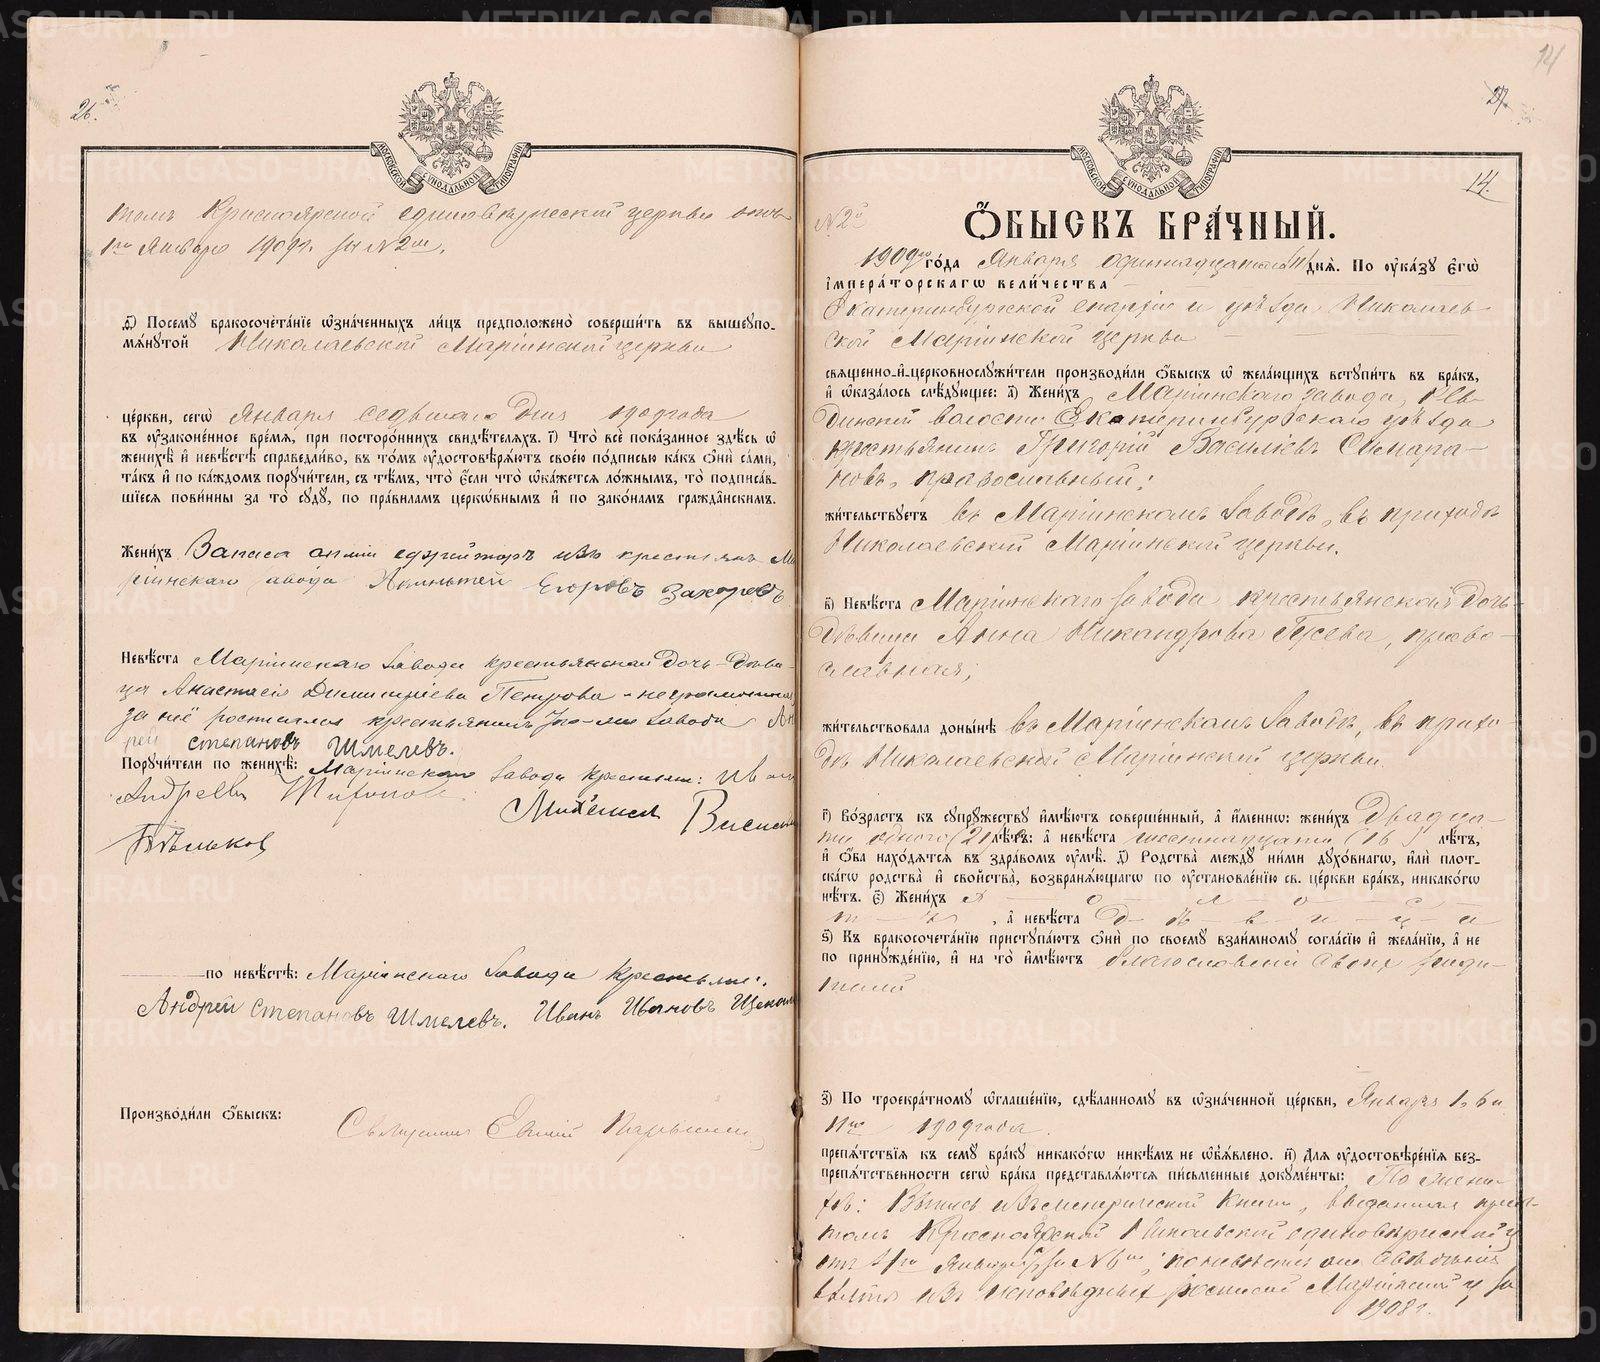 26.
МОСКОВСКОЙ СѴНОДАЛЬНОЙ ТИПОГРАФІИ
томъ Красноярской единовѣрческой церкви отъ
1го Января 1909г. за №2мъ.
Посемꙋ бракосочета́нїе ѡзна́ченныхъ ли́цъ предположено̀ соверши́ть въ вышеупо-
мѧ́нутой Николаевской Маріинской церкви
це́ркви, сегѡ̀ Января седьмаго дня 1909 года
въ ᲂу҆зако́ненное вре́мѧ, при посторо́ннихъ свидѣ́телѧхъ. і҃) Что̀ всѐ пока́занное здѣ́сь ѡ҆
женихѣ̀ и҆ невѣ́стѣ справедли́во, въ то́мъ ᲂу҆достовѣрѧ́ютъ своею по́дписью ка́къ ѻ҆нѝ са́ми,
та́къ и҆ по ка́ждомъ порꙋчи́тели, съ тѣ́мъ, что̀ є҆́сли что̀ ѡ҆ка́жетсѧ ло́жнымъ, то̀ подписа́в-
шїесѧ пови́нны за то̀ сꙋдꙋ̀, по пра́виламъ церкѡ́внымъ и҆ по зако́намъ гражда́нскимъ.
Жени́хъ Запаса арміи ефрейторъ изъ крестьянъ Ма
ріинскаго завода Егоровъ Захаровъ
Невѣ́ста Маріинскаго завода крестьянская дочь-дѣви-
ца Анастасія Димитріева Петрова - неграмотная
за неё росписался крестьянинъ завода Ан
рей Степановъ Шмелевъ.
Порꙋчи́тели по женихѣ̀: Маріинскаго завода крестьяне: Иван
Андреевъ
Михаилъ
по невѣ́стѣ: Маріинскаго завода крестьяне:
Андрей Степановъ Шмелевъ. Иванъ Ивановъ
Произво́дили ѻ҆́быскъ: Священникъ
14
27.
МОСКОВСКОЙ СѴНОДАЛЬНОЙ ТИПОГРАФІИ
14.
№2й
Ѻ҆́БЫСКЪ БРА́ЧНЫЙ.
1909го го́да Января одиннадцатаго 11 днѧ̀. По ᲂу҆ка́зꙋ Є҆гѡ̀
І҆мпера́торскагѡ вели́чества
Екатеринбургской епархіи и уѣзда Николаев-
ской Маріинской церкви
свѧще́нно-и҆-церковнослꙋжи́тели производи́ли ѻ҆́быскъ ѡ҆ жела́ющихъ вступи́ть въ бра́къ,
и҆ ѡ҆каза́лось слѣ́дꙋющее: а҃) Жени́хъ Маріинскаго завода,
динской волости Екатеринбургскаго уѣзда
крестьянинъ Григорій Василіевъ
новъ, православный;
жи́тельствꙋетъ въ Маріинскомъ заводѣ, въ приходѣ
Николаевской Маріинской церкви.
в҃) Невѣ́ста Маріинскаго завода крестьянская дочь-
дѣвица Анна Никандрова Гусева, право-
славная;
жи́тельствовала доны́нѣ въ Маріинскомъ заводѣ, въ прихо-
дѣ Николаевской Маріинской церкви.
г҃) Во́зрастъ къ сꙋпрꙋ́жествꙋ и҆мѣ́ютъ соверше́нный, а҆ и҆́менно: жени́хъ Двадца-
ти одного (21) лѣ́тъ: а҆ невѣ́ста шестнадцати (16) лѣ́тъ,
и҆ ѻ҆́ба нахо́дѧтсѧ въ здра́вомъ ᲂу҆мѣ̀. д҃) Родства̀ междꙋ̀ ни́ми дꙋхо́внагѡ, и҆лѝ пло́т-
ска́гѡ родства̀ и҆ свойства̀, возбранѧ́ющагѡ по ᲂу҆становле́нїю св. це́ркви бра́къ, никако́гѡ
нѣ́тъ. є҃) Жени́хъ х - о - л - о - с -
т - ъ, а҆ невѣ́ста д - ѣ - в - и - ц - а
ѕ҃) Къ бракосочета́нїю пристꙋпа́ютъ ѻ҆нѝ по своемꙋ̀ взаи́мномꙋ согла́сїю и҆ жела́нїю, а҆ не
по принꙋжде́нїю, и҆ на то̀ и҆мѣ́ютъ благословеніе своихъ роди-
телей
з҃) По троекра́тномꙋ ѡ҆глаше́нїю, сдѣ́ланномꙋ въ ѡ҆зна́ченной це́ркви, Января 1, 6 и
11го 1909 года.
препѧ́тствїѧ къ семꙋ̀ бра́кꙋ никако́гѡ никѣ́мъ не ѡ҆б̾ѧ́влено. и҃) Длѧ̀ ᲂу҆достовѣре́нїѧ без-
препѧ́тственности сегѡ̀ бра́ка представлѧ́ютсѧ пи́сьменные докꙋме́нты: По жени-
хѣ: Выпись изъ метрической книги, выданная прич-
томъ Красноярской единовѣрческой ц
отъ Января за №6мъ; по невѣстѣ свѣдѣнія
взяты изъ исповѣдныхъ росписей Маріинской ц за
1908 г.
METRIKI.GASO-URAL.RU